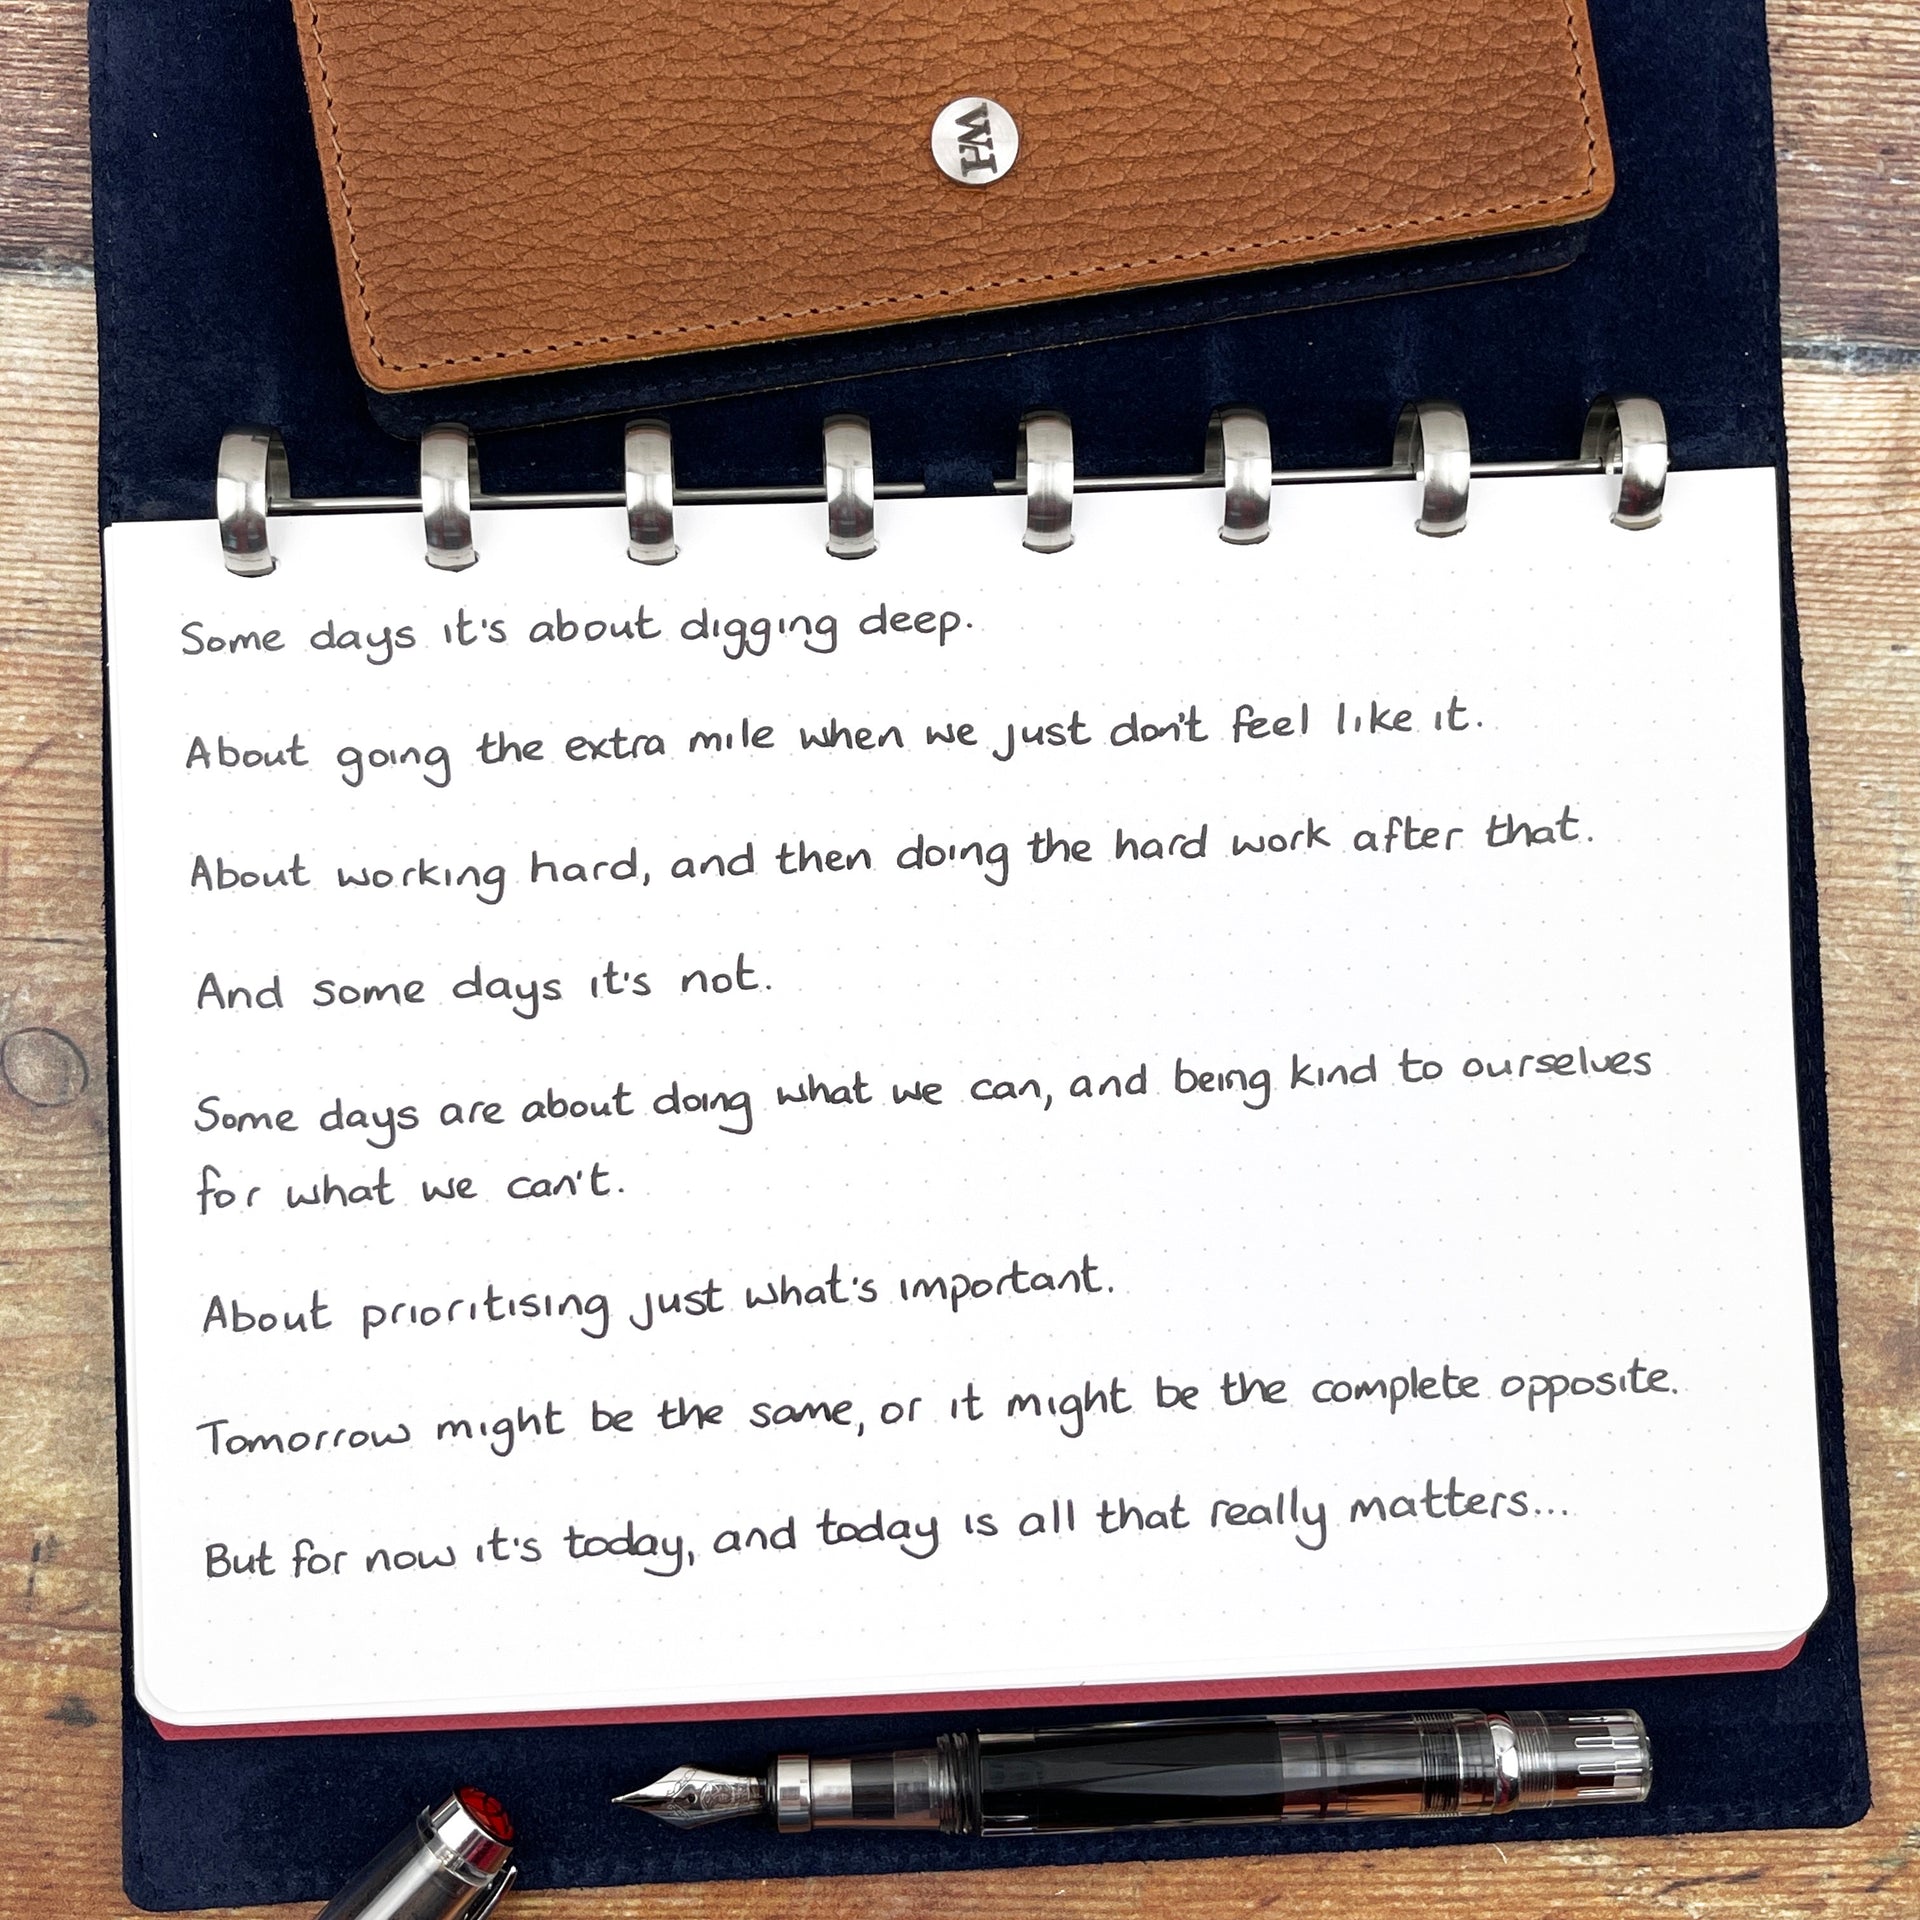 WH
Some days it's about digging deep.
About going the extra mile when we just don't feel like it.
About working hard, and then doing the hard work after that.
And some days it's not.
Some days are about doing what we can, and being kind to ourselves
for what we can't.
About prioritising just what's important.
Tomorrow might be the same, or it might be the complete opposite.
But for now it's today, and today is all that really matters...